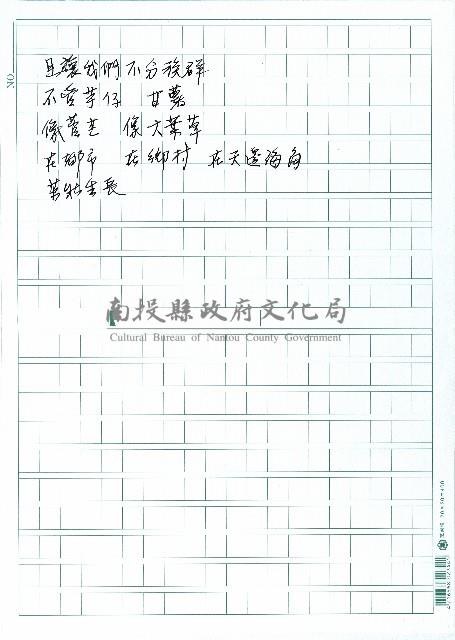 NO.
且讓我們不分族群
不管芋仔 甘薯
像菅芒 像大葉草
在都市 在鄉村 在天邊海角
茁壯生長
南投縣政府文化局
Cultural Bureau of Nantou County Government